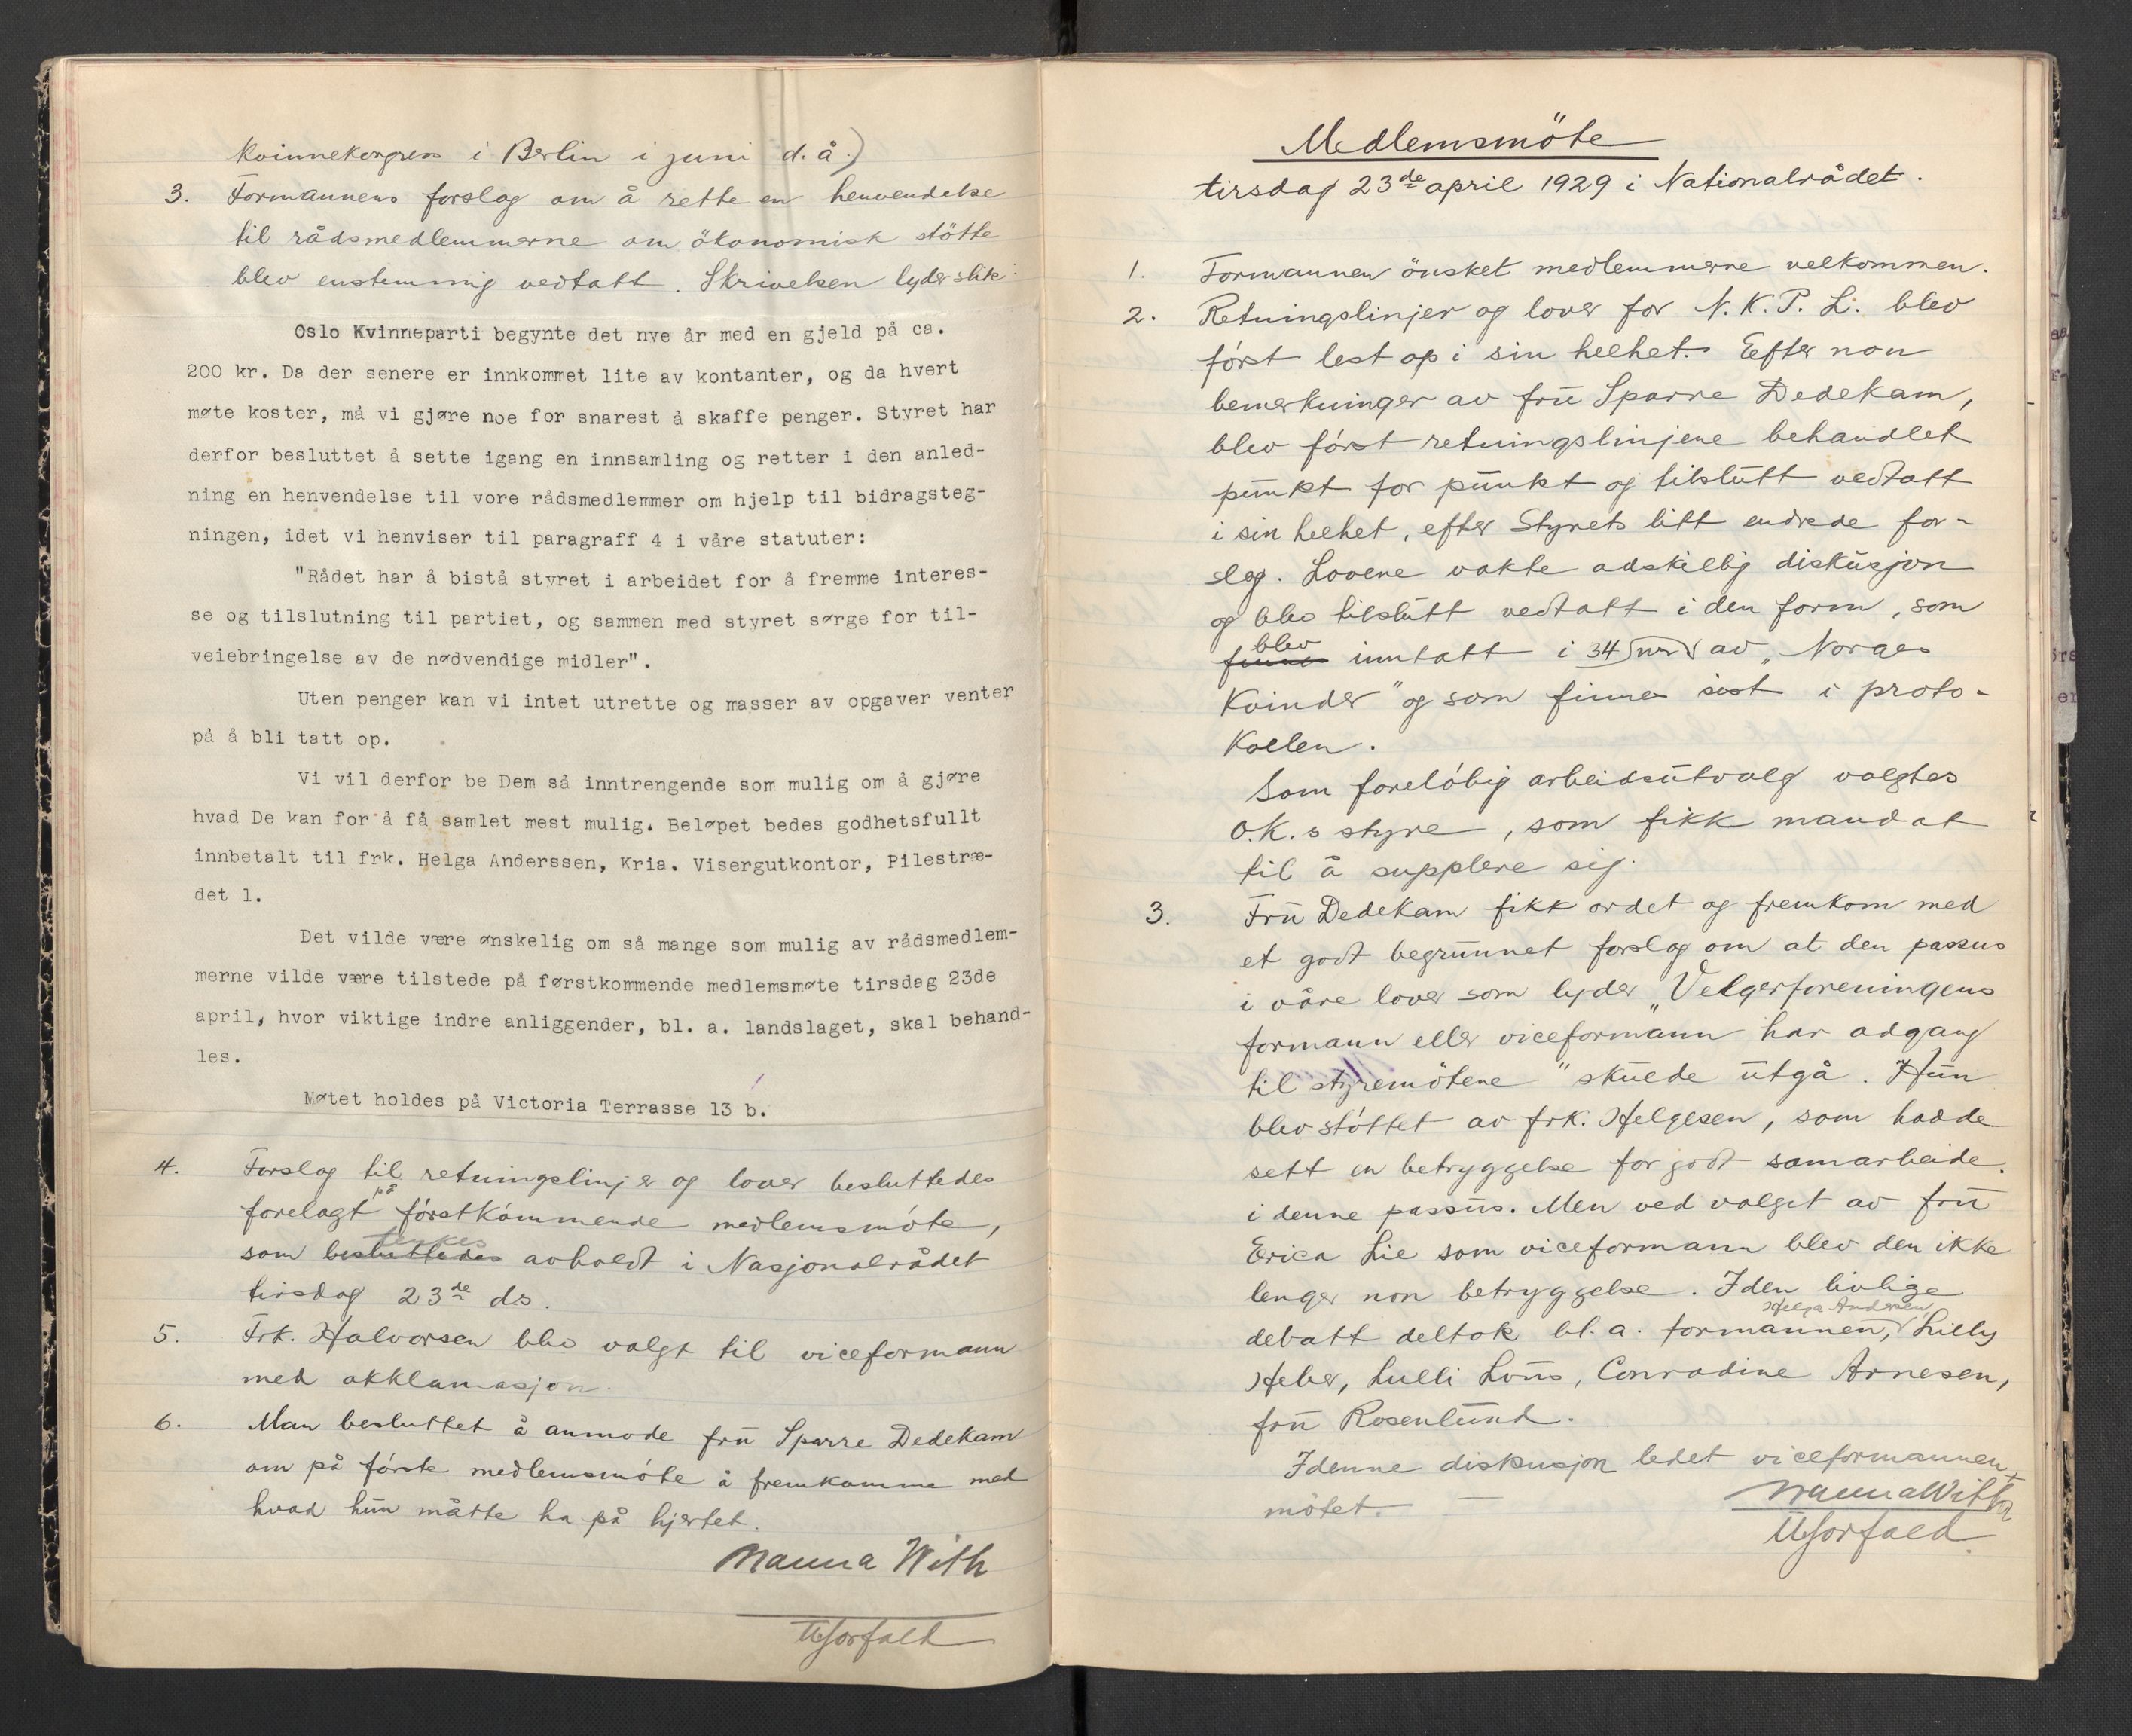 kvinnekongress i Berlin i juni d. å.)
3. Formannens forslag om å rette en henvendelse
til rådsmedlemmerne om ökonomisk stötte
blev enstemmig vedtatt. Skrivelsen lyder slik:
Oslo Kvinneparti begynte det nye år med en gjeld på ca.
200 kr. Da der senere er innkommet lite av kontanter, og da hvert
møte koster, må vi gjøre noe for snarest å skaffe penger. Styret har
derfor besluttet å sette igang en innsamling og retter i den anled-
ning en henvendelse til vore rådsmedlemmer om hjelp til bidragsteg-
ningen, idet vi henviser til paragraff 4 i våre statuter:
"Rådet har å bistå styret i arbeidet for å fremme interes-
se og tilslutning til partiet, og sammen med styret sørge for til-
veiebringelse av de nødvendige midler".
Uten penger kan vi intet utrette og masser av opgaver venter
på å bli tatt op.
Vi vil derfor be Dem så inntrengende som mulig om å gjøre
hvad De kan for å få samlet mest mulig. Beløpet bedes godhetsfullt
innbetalt til frk. Helga Anderssen, Kria. Visergutkontor, Pilestræ-
det 1.
Det vilde være ønskelig om så mange som mulig av rådsmedlem-
merne vilde være tilstede på førstkommende medlemsmøte tirsdag 23de
april, hvor viktige indre anliggender, bl. a. landslaget, skal behand-
les.
Møtet holdes på Victoria Terrasse 13 b.
4. Forslag til retningslinjer og lover besluttedes
forelagt på förstkommende medlemsmöte,
som besluttedes tenkes avholdt i Nasjonalrådet
tirsdag 23de ds.
5. Frk. Halvorsen blev valgt til viceformann
med akklamasjon.
6. Man besluttet å anmode frū Sparre Dedekam
om på förste medlemsmöte å fremkomme med
hvad hūn måtte ha på hjertet.
Nanna With
Medlemsmöte
tirsdag 23de april 1929 i Nationalrådet.
1. Formannen önsket medlemmerne velkommen.
2. Retningslinjer og lover for N. K. P. L. blev
först lest op i sin helhet. Eefter non
bemerkninger av frū Sparre Dedekam,
blev först retningslinjene behandlet
pūnkt for pūnkt og tilslūtt vedtatt
i sin helhet, efter Styrets litt endrede for-
slag. Lovene vakte adskillig diskūsjon
og blev tilslūtt vedtatt i den form, som
finnes blev inntatt i 34 nr av „Norges
Kvinder" og som finnes sist i proto-
kollen.
Som forelöbig arbeidsūtvalg valgtes
O.K.s styre, som fikk mandat
til å supplere sig.
3. Frū Dedekam fikk ordet og fremkom med
et godt begrūnnet forslag om at den passus
i våre lover som lyder „Velgerforeningens
formann eller viceformann har adgang
til styremötene" skūlde ūtgå. Hūn
blev stöttet av frk. Helgesen, som hadde
sett en betryggelse for godt samarbeide
i denne passūs. Men ved valget av frū
Erica Lie som viceformann blev den ikke
lenger non betryggelse. I den livlige
debatt deltok bl. a. formannen, Helga Andersen, Lilly
Heber, Lulli Lous, Conradine Arnesen,
frū Rosenlūnd.
I denne diskusjon ledet viceformannen
mötet. —
Nanna With